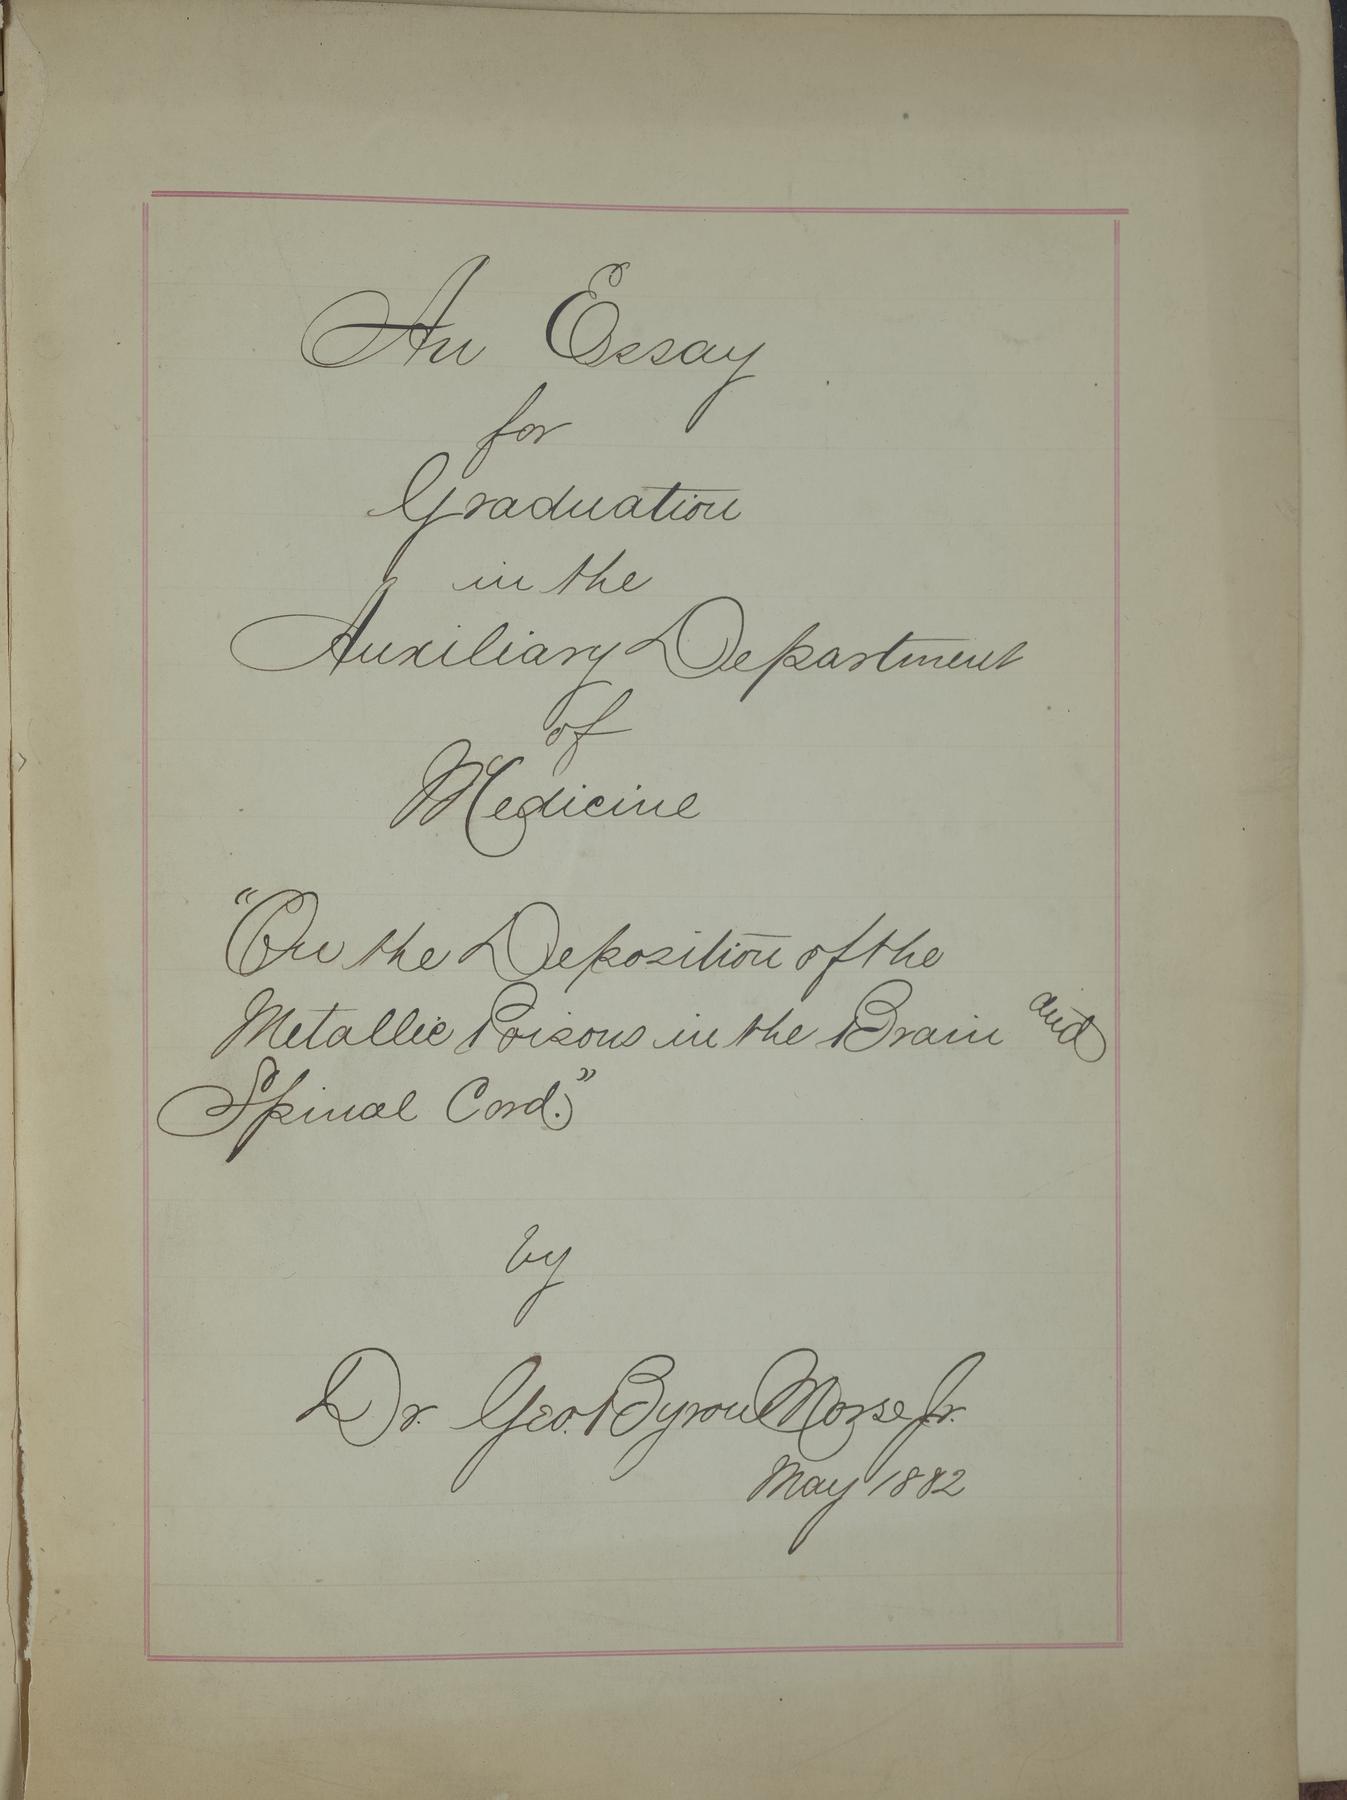 An Essay
for
Graduation
in the
Auxiliary Department
of
Medicine
"On the Deposition of the
Metallic Poisons in the Brain and
Spinal Cord."
by
Dr. Geo. Byron Morse Jr.
May 1882